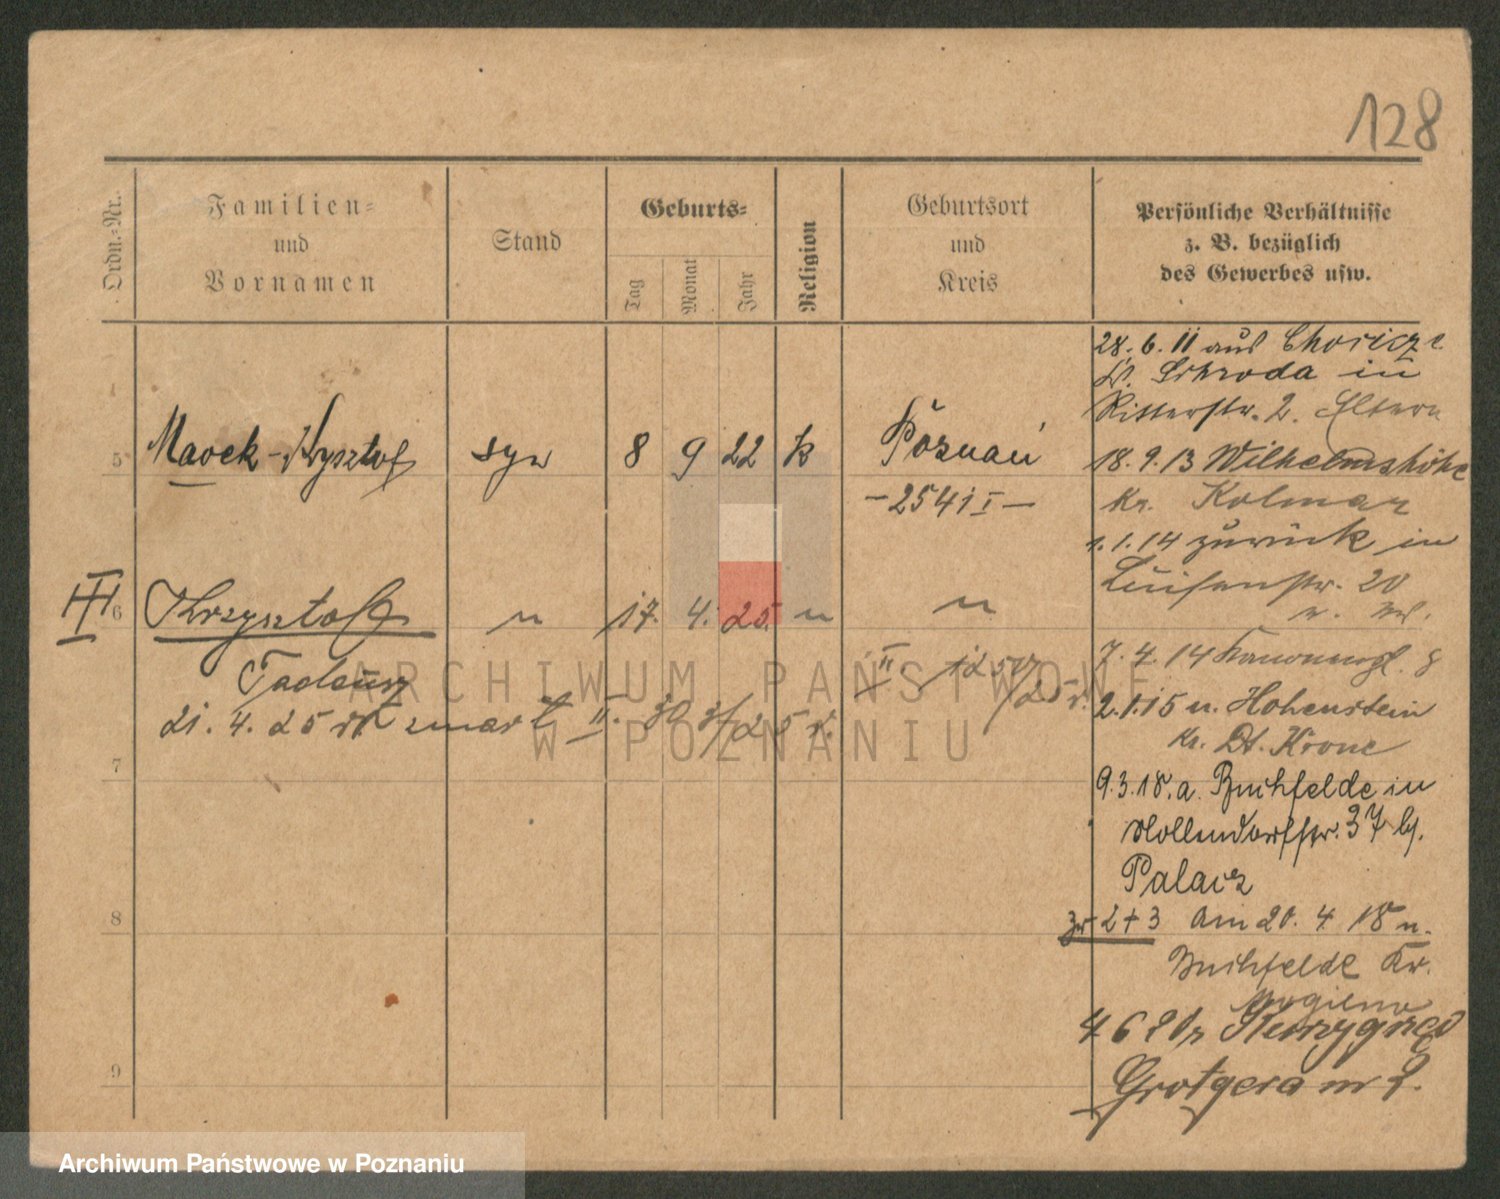 128
Ordn.-Nr.
Familien-
und
Vornamen
Stand
Geburts-
Tag
Monat
Jahr
Religion
Geburtsort
und
Kreis
Persönliche Verhältnisse
z. B. bezüglich
des Gewerbes usw.
5 Marek-Krysztof syn 8 9 22 k Poznań
-2541 I-
III 6 Krzysztof " 17. 4. 25. " "
Tadeusz
21. 4. 25 zmarł II. 30 3/25 r.
7
8
9
28. 6. 11 aus
Kr. Schroda in
Ritterstr. 2. Eltern
18. 9. 13 Wilhelmshöhe
Kr. Kolmar
1. 1. 14 zurück in
Luisenstr. 20
7. 4. 14 8
2.1.15 n. Hohenstein
Kr. Dt. Krone
9.3.18. a. Buchfelde in
Hollendorffstr. 37 b.
Palacz
zu 2+3 am 20. 4. 18 n.
Buchfelde Kr.
Mogilno
4 6
Grotgera nr 2.
ARCHIWUM PAŃSTWOWE
W POZNANIU
Archiwum Państwowe w Poznaniu